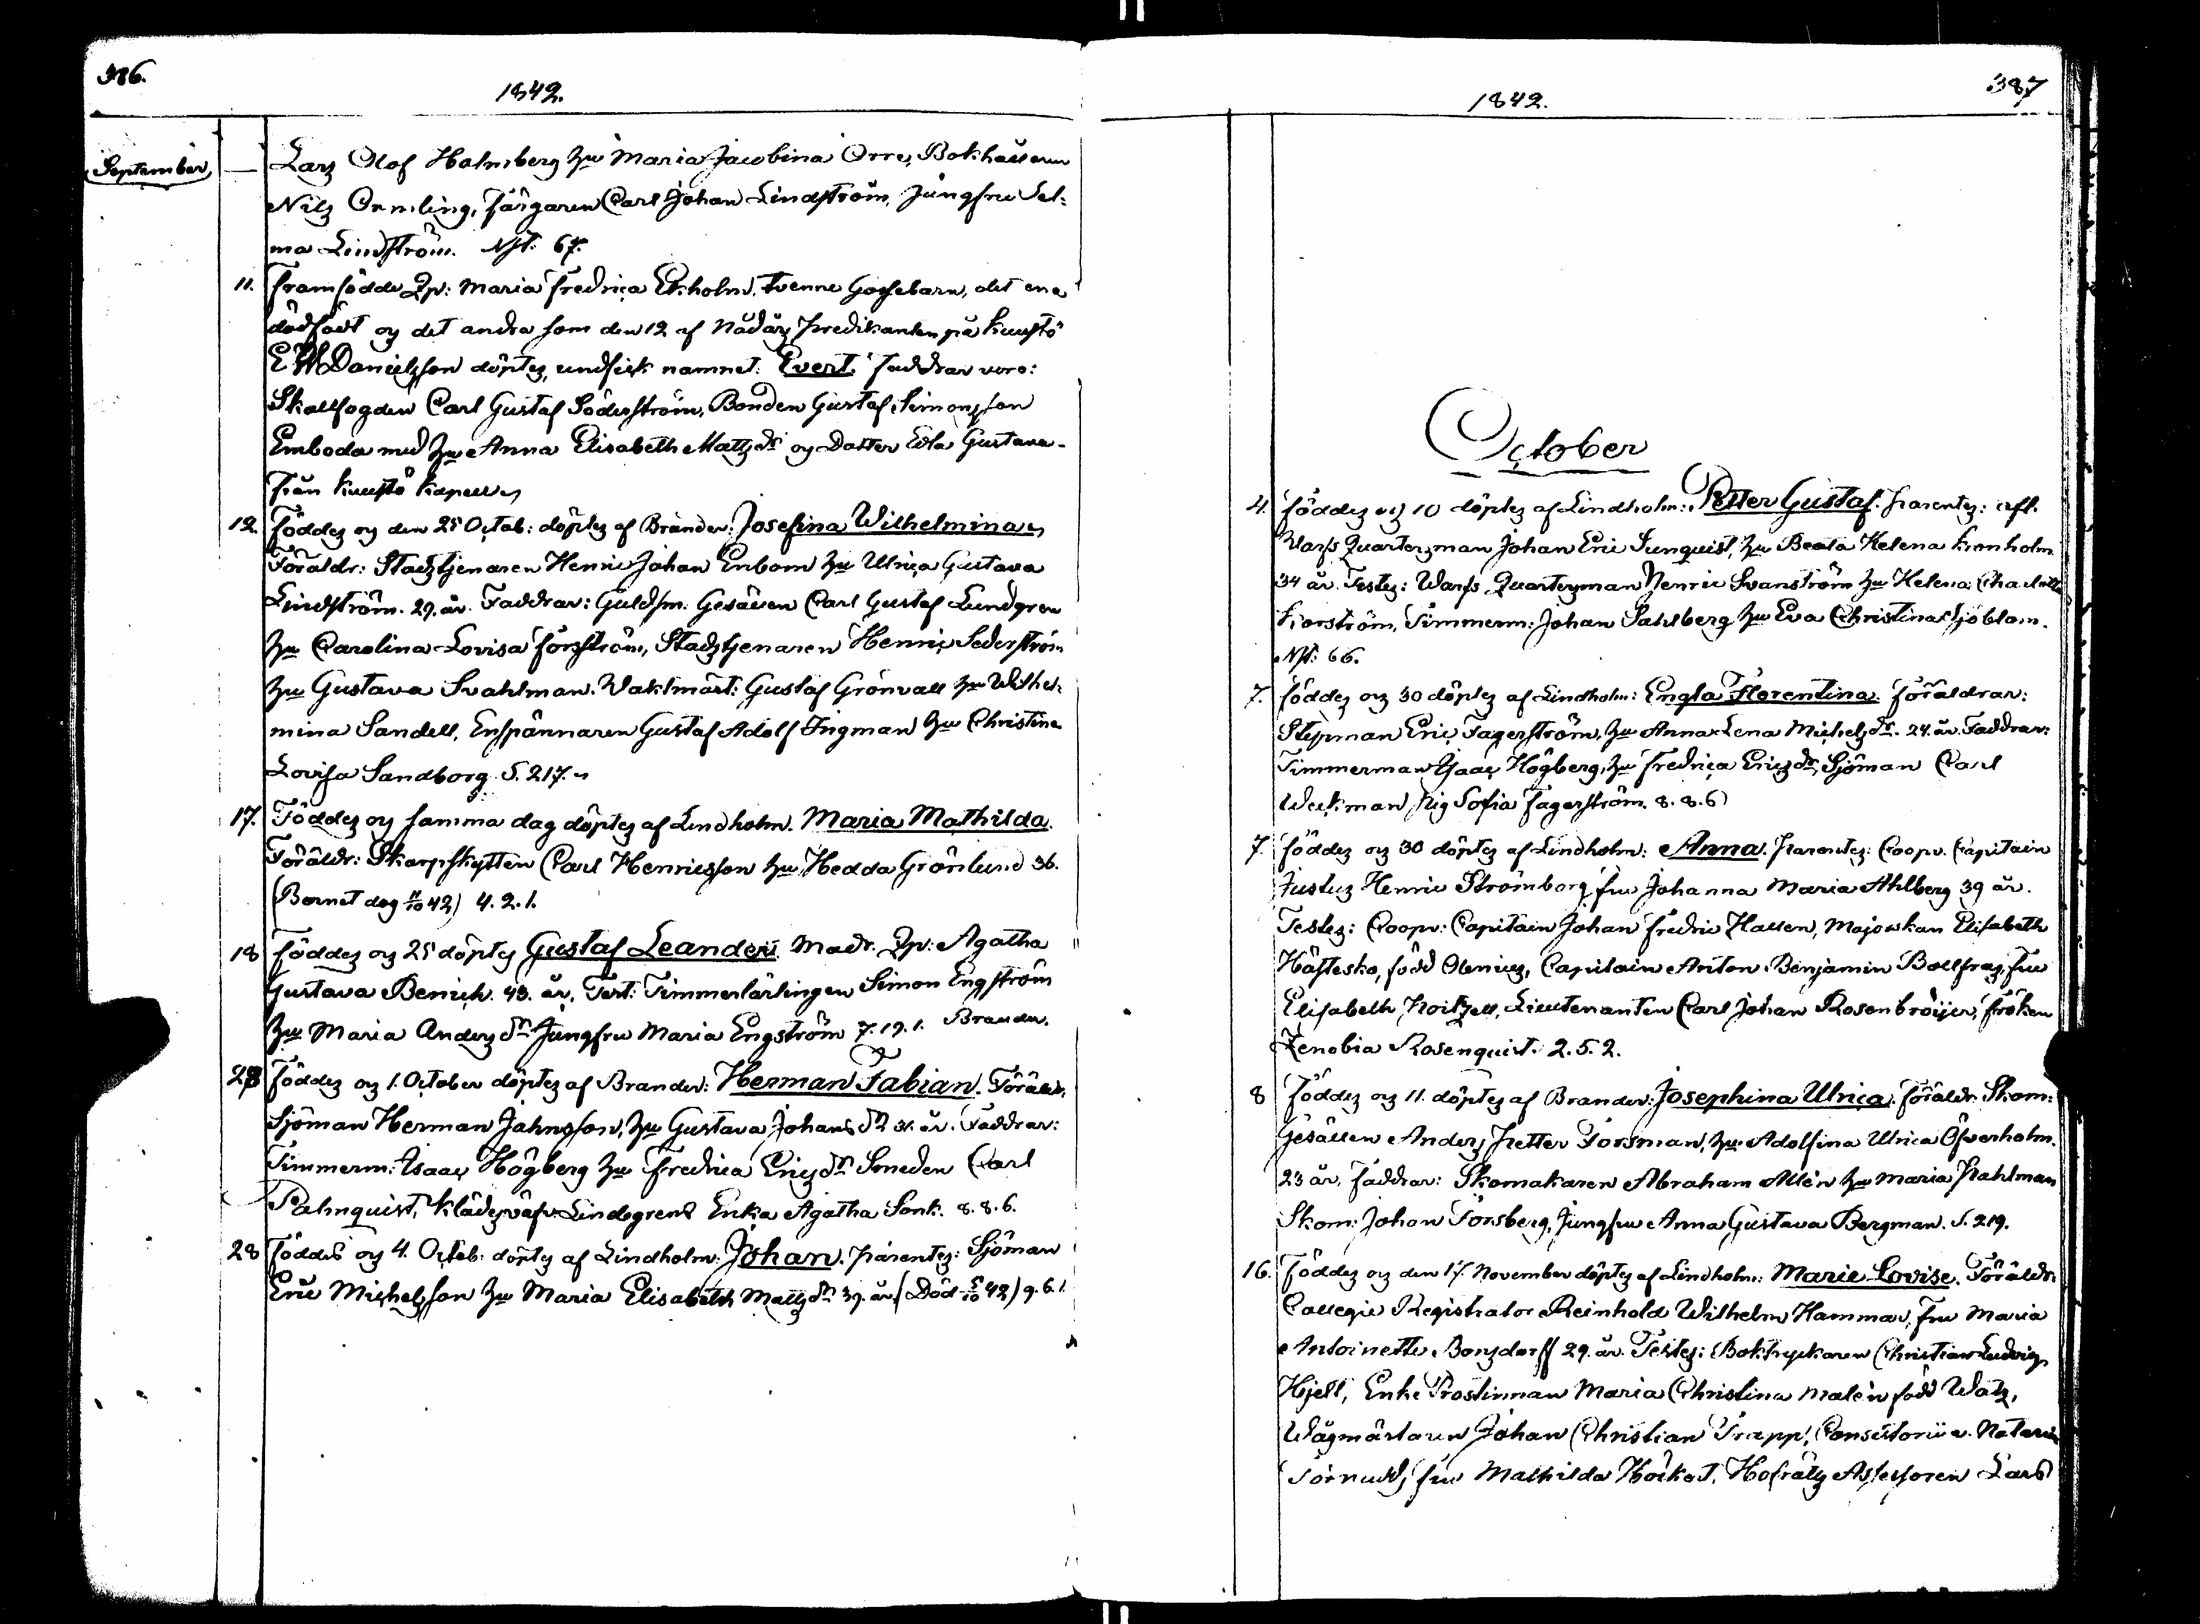 386.
1842.
September
Lars Olof Holmberg hu Maria Jacobina Orre, Bokhållaren
Nils Ormling, färgaren Carl Johan Lindström, Jungfru Sel-
ma Lindström. Nst: 67.
11. framfödde Qp: Maria Fredrica Ekholm, tvenne Gossebarn, det ena
dödfödt og det andra som den 12 af Nådårs predikanten på Kuustö
E W Danielsson döptes, undfick namnet: Evert. Faddrar voro:
Skallfogden Carl Gustaf Söderström, Bonden Gustaf Simonsson
Emboda med hu Anna Elisabeth Mattsdr og Dotter Edla Gustava
från Kuustö Kapell
12. Föddes og den 25 Octob: döptes af Brander: Josefina Wilhelmina
Föräldr: Stadstjenaren Henric Johan Enbom hu Ulrica Gustava
Lindström. 29. år. Faddrar: Guldsm. Gesällen Carl Gustaf Lundgren
hu Carolina Lovisa Forsström, Stadstjenaren Henric Sederström
hu Gustava Svahlman. Waktmäst: Gustaf Grönvall hu Wilhel-
mina Sandell, Enspännaren Gustaf Adolf Ingman hu Christina
Lovisa Sandborg S. 217.
17. Föddes og samma dag döptes af Lindholm. Maria Mathilda.
Föräldr: Skarpskytten Carl Henricsson hu Hedda Grönlund 36.
(Barnet dog 42) 4. 2. 1.
18 föddes og 25 döptes Gustaf Leander. Madr. Qp: Agatha
Gustava Benich. 43. år, Test: Timmerlärlingen Simon Engström
hu Maria Andersdr Jungfru Maria Engström 7. 19. 1. Brander.
28 föddes og 1. October döptes af Brander: Herman Fabian. Föräldr.
Sjöman Herman Jahnsson, hu Gustava Johansdr 31. år. Faddrar:
Timmerm: Isaac Högberg hu Fredrica Ericsdr Smeden Carl
Palmquist, Klädesväfv. Lindegrens Enka Agatha Sonk. 8. 8. 6.
28 föddes og 4. Octob: döptes af Lindholm: Johan. Parentes: Sjöman
Eric Michelsson hu Maria Elisabeth Mattsdr 39. år. (Död 42) 9. 6. 1.
1842.
387
October
4. föddes og 10 döptes af Lindholm: Petter Gustaf. Parentes: afl.
Warfs Quartersman Johan Eric Sunquist, hu Beata Helena Kronholm
34 år. Testes: Warfs Quartersman Henric Svanström hu Helena Charlotta
Forström, Timmerm: Johan Sahlberg hu Eva Christina Sjöblom.
Nst: 66.
7. föddes og 30 döptes af Lindholm: Engla Florentina. Föräldrar:
Stepman Eric Fagerström, hu Anna Lena Michelsdr. 24. år. Faddrar:
Timmerman Isaac Högberg, hu Fredrica Ericsdr, Sjöman Carl
Weckman Pig Sofia Fagerström. 8. 8. 6
7. föddes og 30 döptes af Lindholm: Anna. Parentes: Coopv. Capitain
Justus Henric Strömborg fru Johanna Maria Ahlberg 39 år.
Testes: Coopv: Capitain Johan Fredric Hallen, Majorskan Elisabeth
Hästesko, född Olenius, Capitain Anton Benjamin Bollfras, fru
Elisabeth Hoitzell, Lieutenanten Carl Johan Rosenbröijer, fröken
Zenobia Rosenquist. 2. 5. 2.
8 föddes og 11. döptes af Brander: Josephina Ulrica. Föräldr. Skom:
Gesällen Anders Petter Forsman, hu Adolfina Ulrica Öfverholm.
23 år. faddrar: Skomakaren Abraham Allén hu Maria Stahlman
Skom: Johan Forsberg, Jungfru Anna Gustava Bergman. S. 219.
16. föddes og den 17. November döptes af Lindholm: Marie Lovise. Föräldr:
Collegie Registrator Reinhold Wilhelm Hammar, fru Maria
Antoinette Bonsdorff 29. år. Testes: Boktryckaren Christian Ludvig
Hjelt, Enke Prostinnan Maria Christina Malén född Watz,
Wågmästaren Johan Christian Trapp, Consistorii v. Notarie
Törnudd, fru Mathilda Hoikat, Hofräts Assessoren Lars